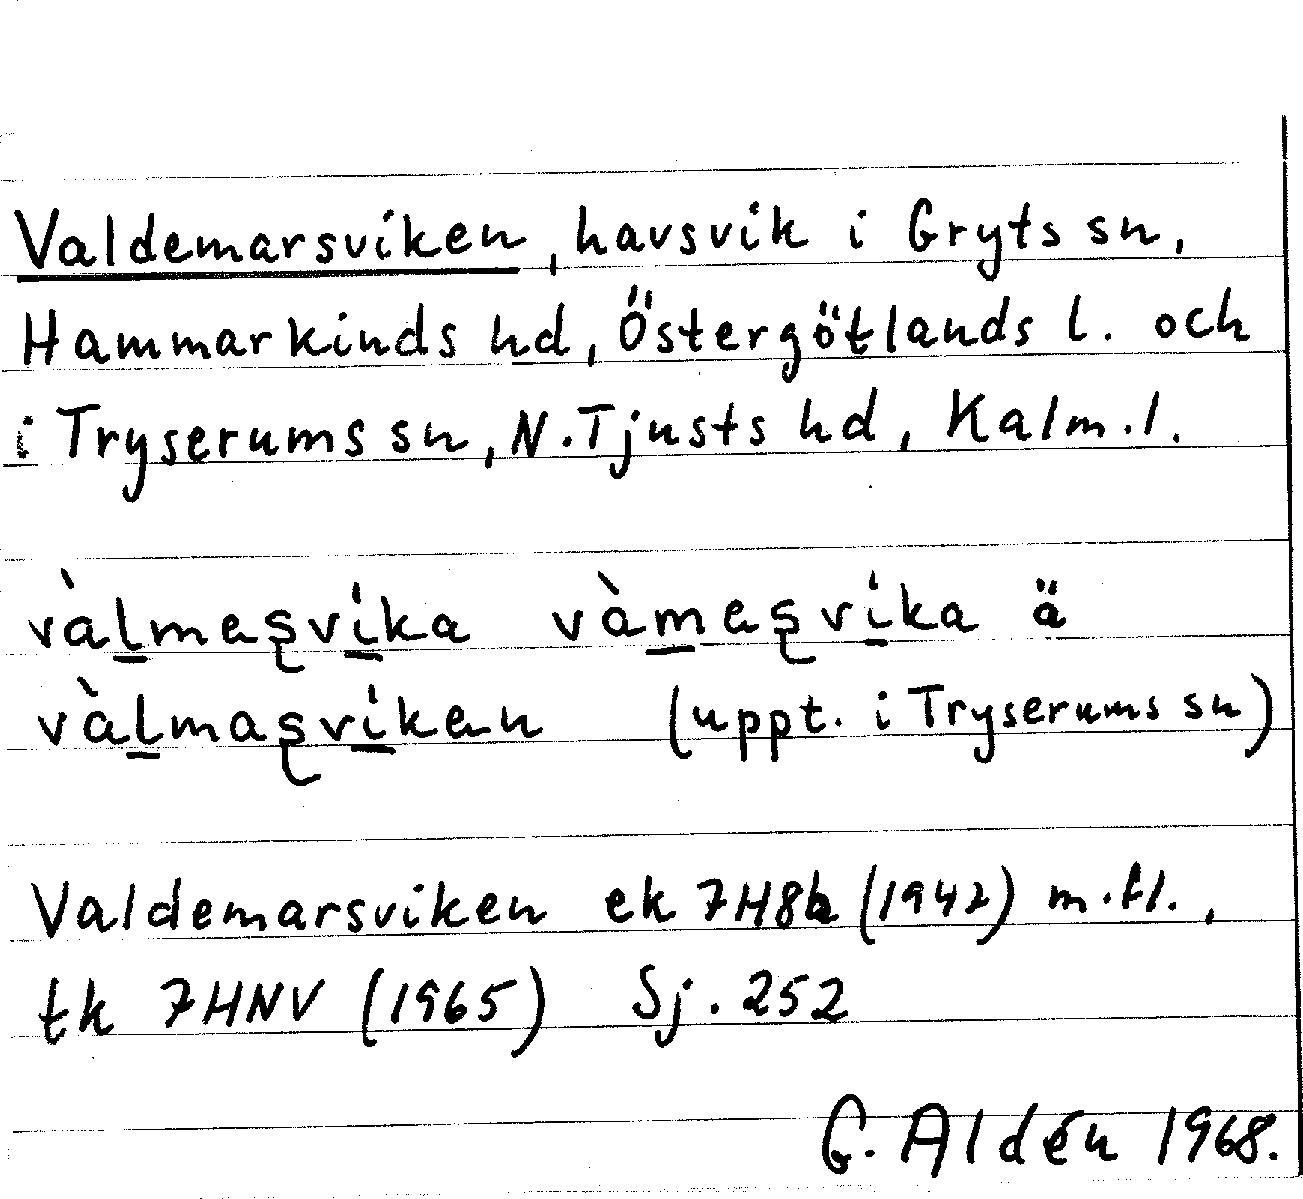 Valdemarsviken, havsvik i Gryts sn,
Hammarkinds hd, Östergötlands l. och
i Tryserums sn, N.Tjusts hd, Kalm.l.
vàl̲mesʂvi̲ka vàm̲eʂvi̲ka ä
vàl̲maʂvi̲ken (uppt. i Tryserums sn)
Valdemarsviken ek 7H8b (1942) m.fl.,
tk 7HNV (1965) Sj. 252
G. Aldén 1968.